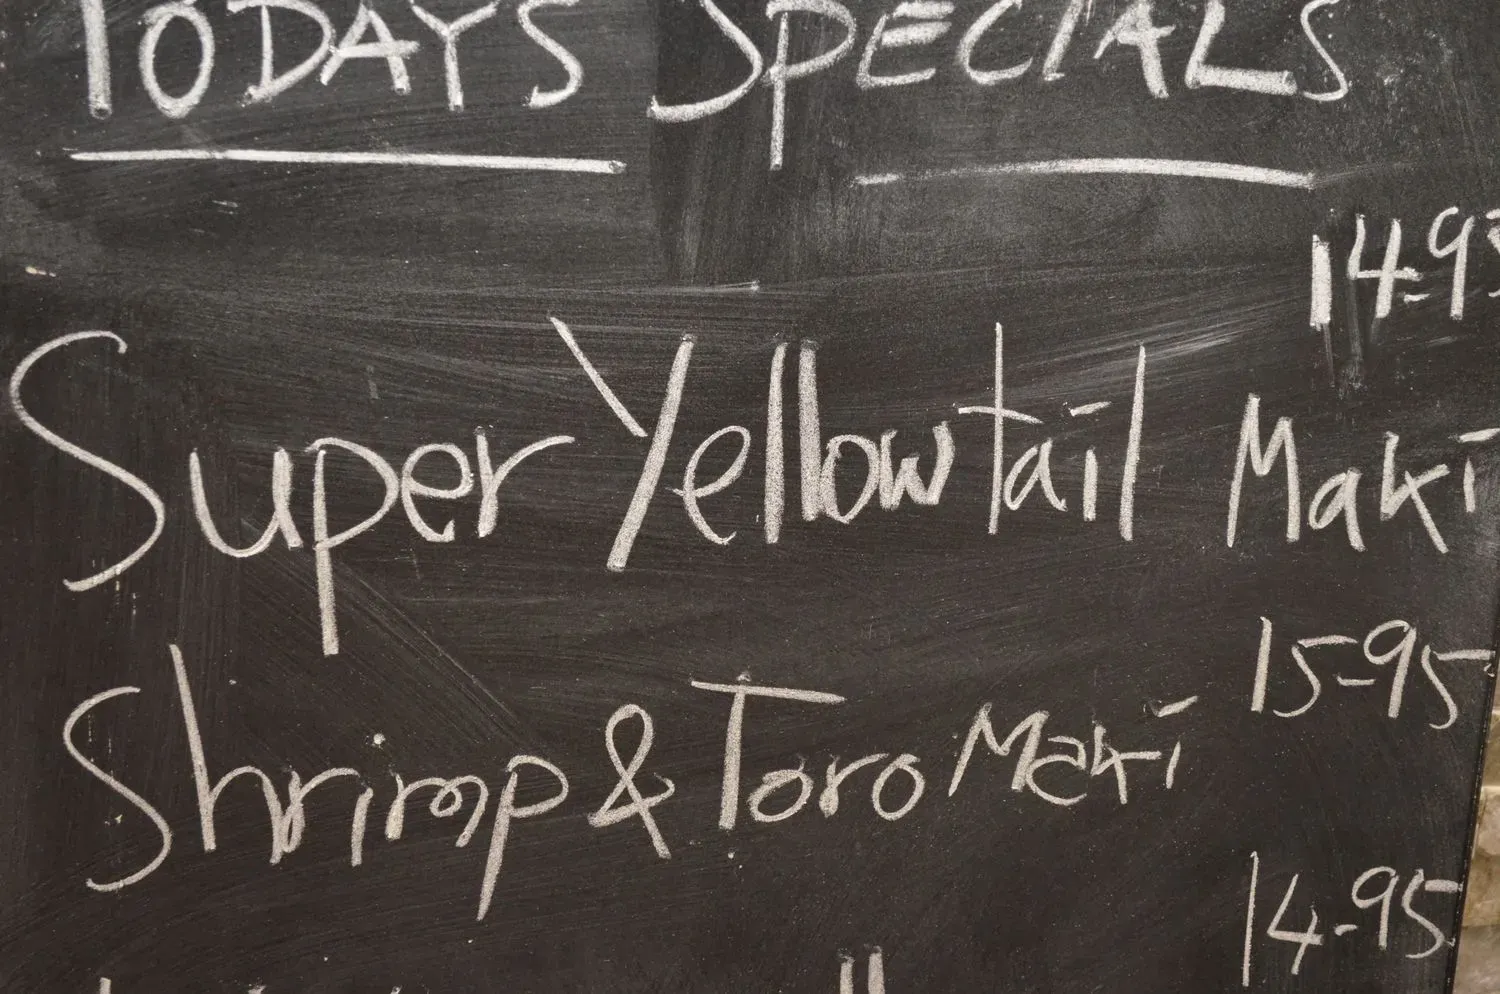 TODAYS SPECIALS
14-95
Super Yellowtail Maki
15-95
Shrimp & Toro Maki
14-95